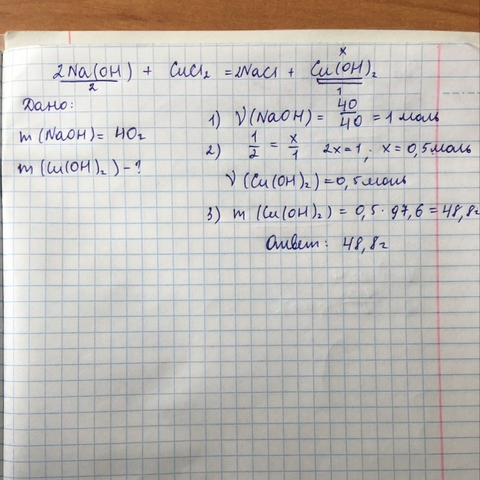 x
2Na(OH) + CuCl₂ = 2NaCl + Cu(OH)₂
2 1
Дано:
m (NaOH) = 40г
m (Cu(OH)₂) - ?
1) ν(NaOH) = 40/40 = 1 моль
2) 1/2 = x/1 2x = 1, x = 0,5 моль
ν (Cu(OH)₂) = 0,5 моль
3) m (Cu(OH)₂) = 0,5 · 97,6 = 48,8г
Ответ: 48,8г